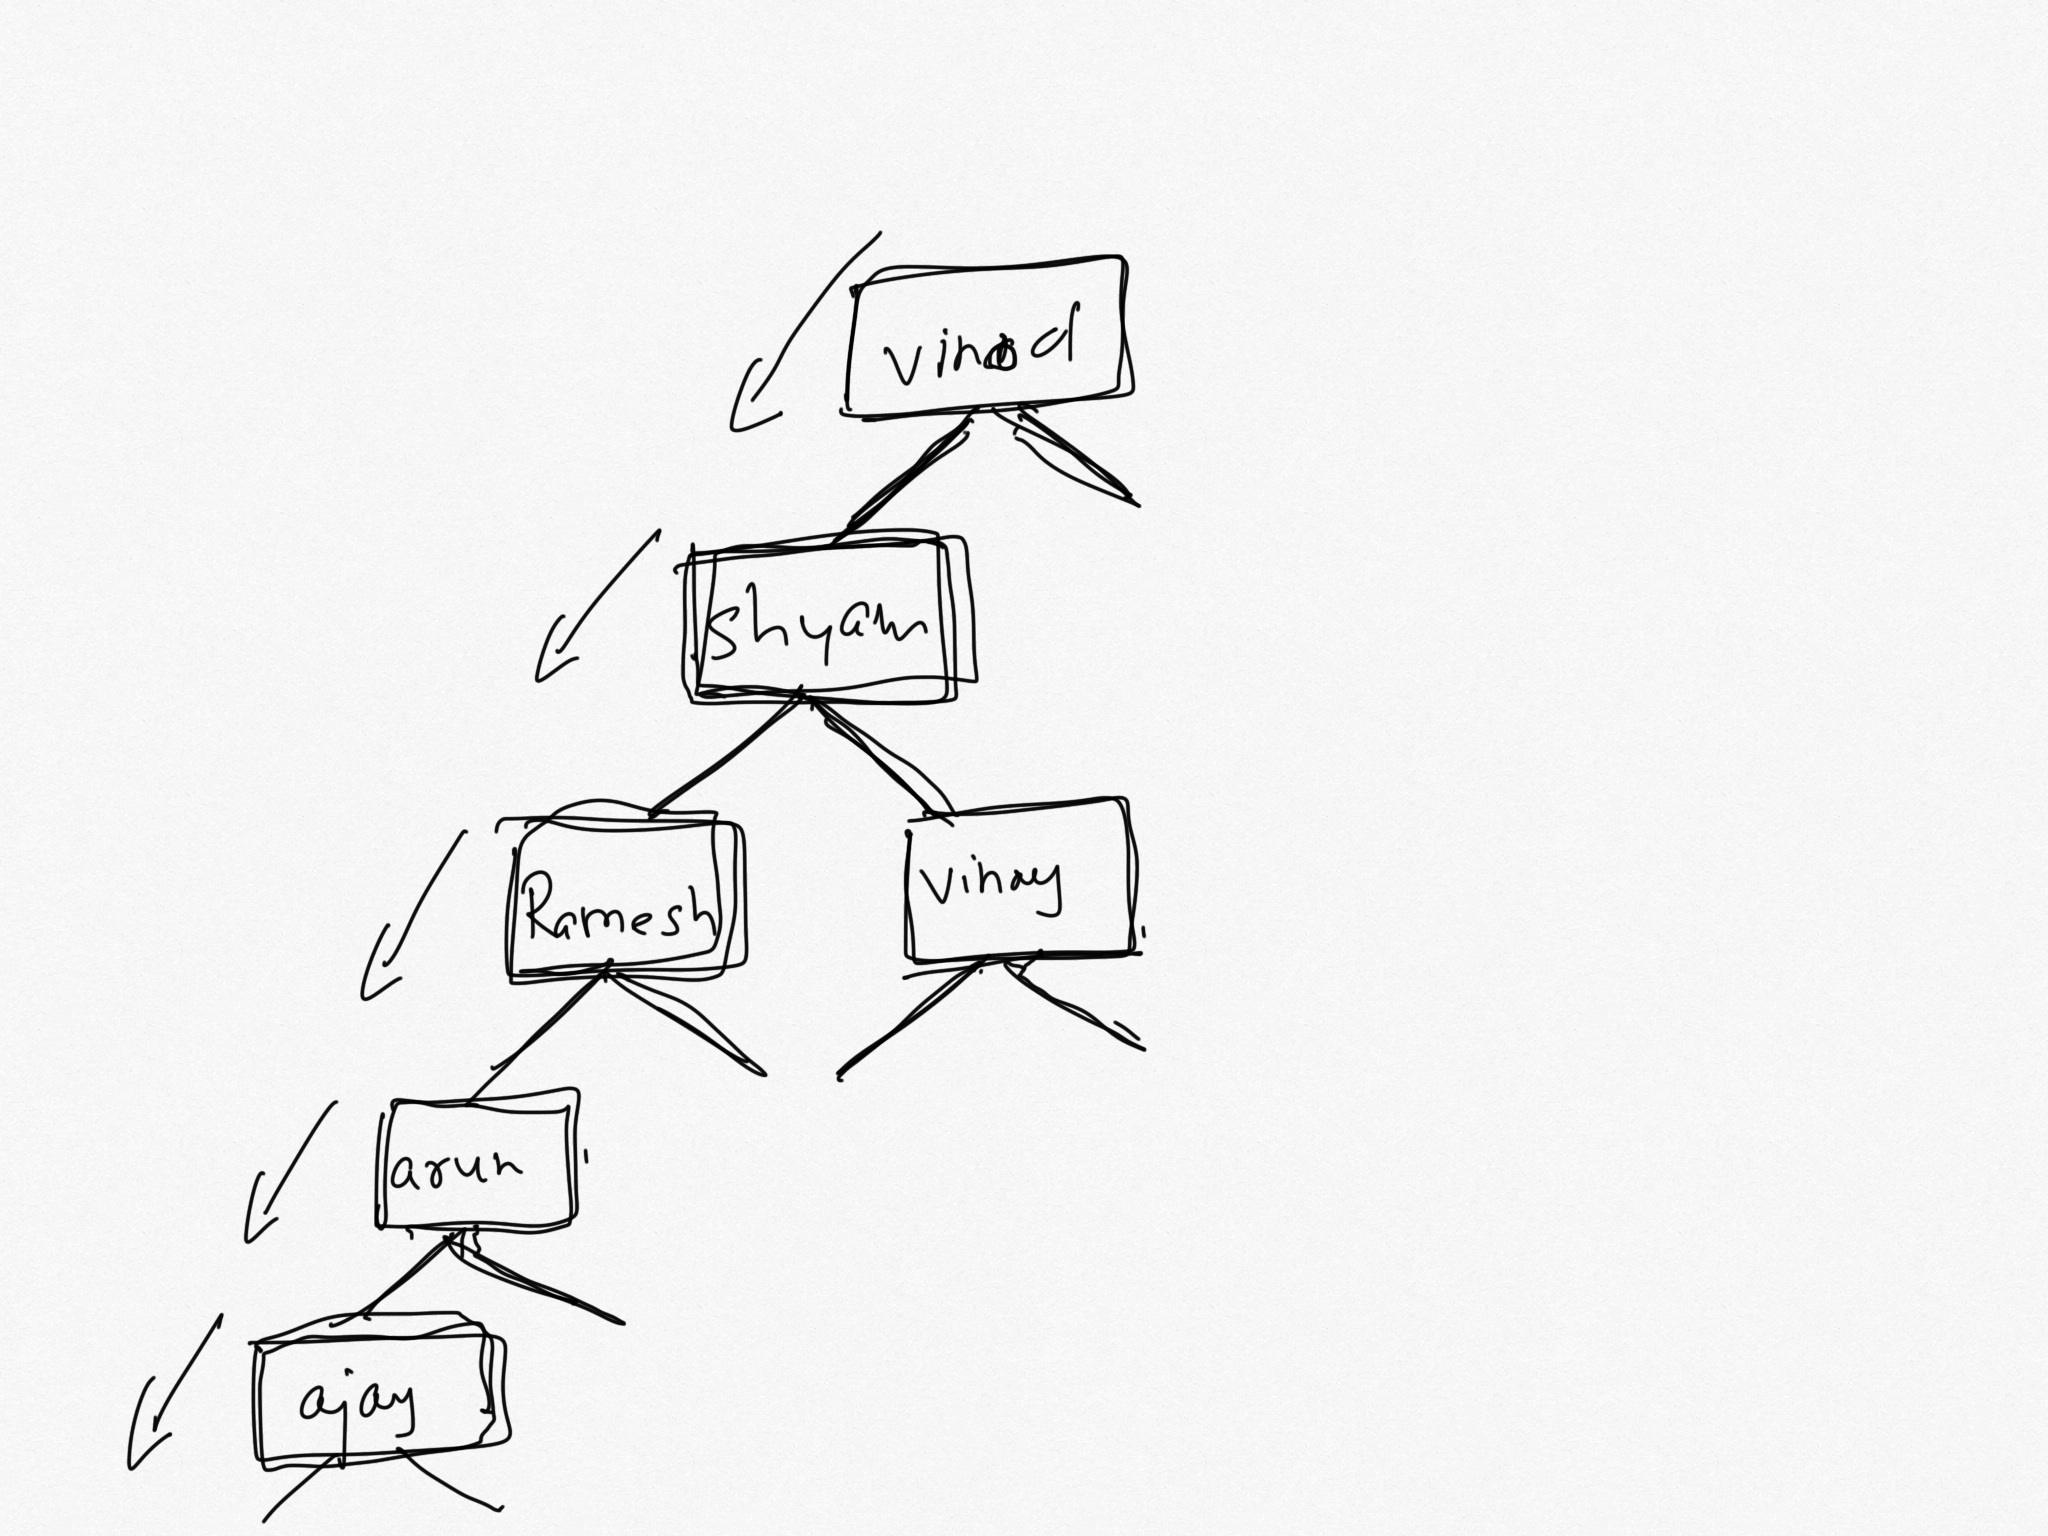 vinod
shyam
Ramesh
vinay
arun
ajay